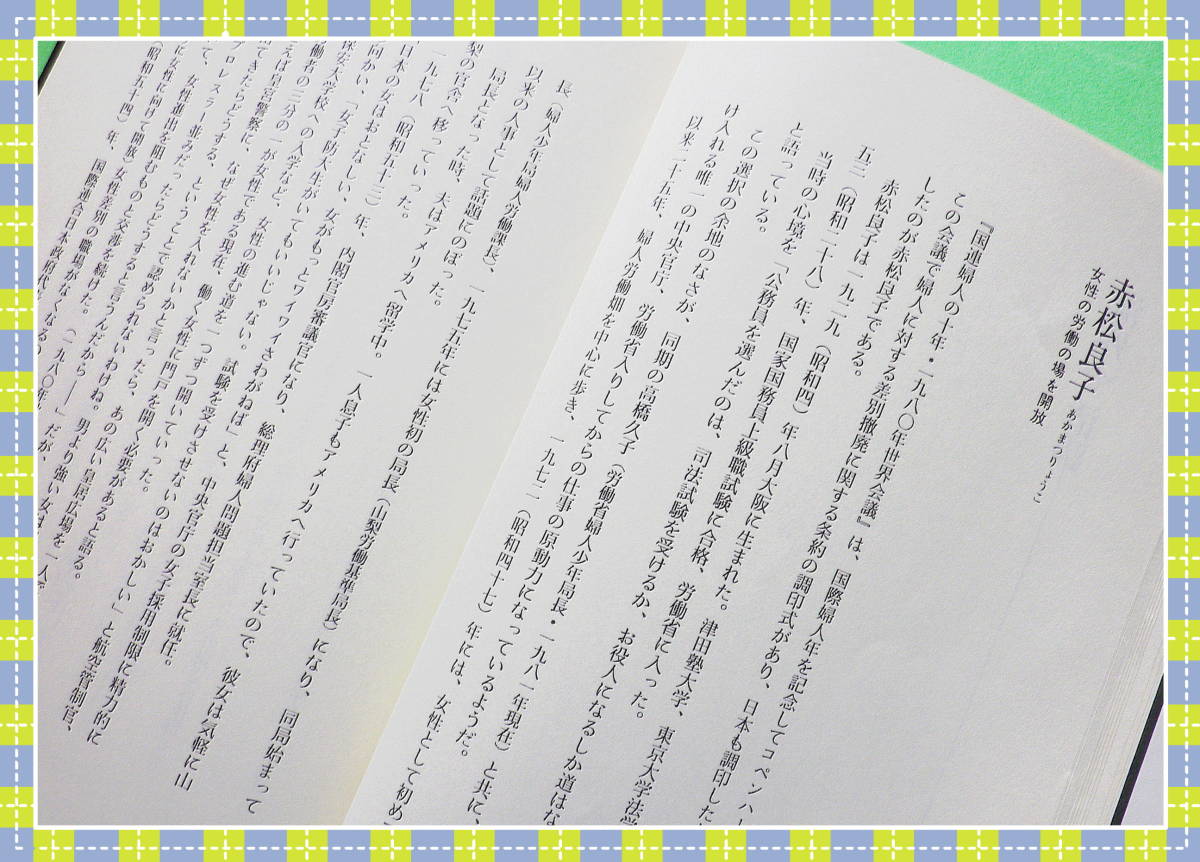 赤松良子 あかまつりょうこ
女性の労働の場を開放
『国連婦人の十年・一九八〇年世界会議』は、国際婦人年を記念してコペンハー
この会議で婦人に対する差別撤廃に関する条約の調印式があり、日本も調印した
したのが赤松良子である。
赤松良子は一九二九(昭和四)年八月大阪に生まれた。津田塾大学、東京大学法学
五三(昭和二十八)年、国家国務員上級職試験に合格、労働省に入った。
当時の心境を「公務員を選んだのは、司法試験を受けるか、お役人になるしか道はな
と語っている。
この選択の余地のなさが、同期の高橋久子(労働省婦人少年局長・一九八一年現在)と共に、
け入れる唯一の中央官庁、労働省入りしてからの仕事の原動力になっているようだ。
以来二十五年、婦人労働畑を中心に歩き、一九七二(昭和四十七)年には、女性として初め
長(婦人少年局婦人労働課長)、一九七五年には女性初の局長(山梨労働基準局長)になり、同局始まって
以来の人事として話題にのぼった。
局長となった時、夫はアメリカへ留学中。一人息子もアメリカへ行っていたので、彼女は気軽に山
梨の官舎へ移っていった。
一九七八(昭和五十三)年、内閣官房審議官になり、総理府婦人問題担当室長に就任。
日本の女はおとなしい、女がもっとワイワイさわがねば」と、中央官庁の女子採用制限に精力的に
向かい、「女子防大生がいてもいいじゃない。試験を受けさせないのはおかしい」と航空管制官、
保安大学校への入学など、女性の進む道を一つずつ開いていった。
働者の三分の一が女性である現在、働く女性に門戸を開く必要があると語る。
えば皇宮警察に、なぜ女性を入れないかと言ったら、あの広い皇居広場を
できたらどうする、ということで認められないわけね。男より強い女は
プロレスラー並みだったらどうすると言うんだから――」だが、
て、女性進出を阻むものと交渉を続けた。
に女性に向けて開放、女性差別の職場がな
(昭和五十四)年、国際連合日本政府代